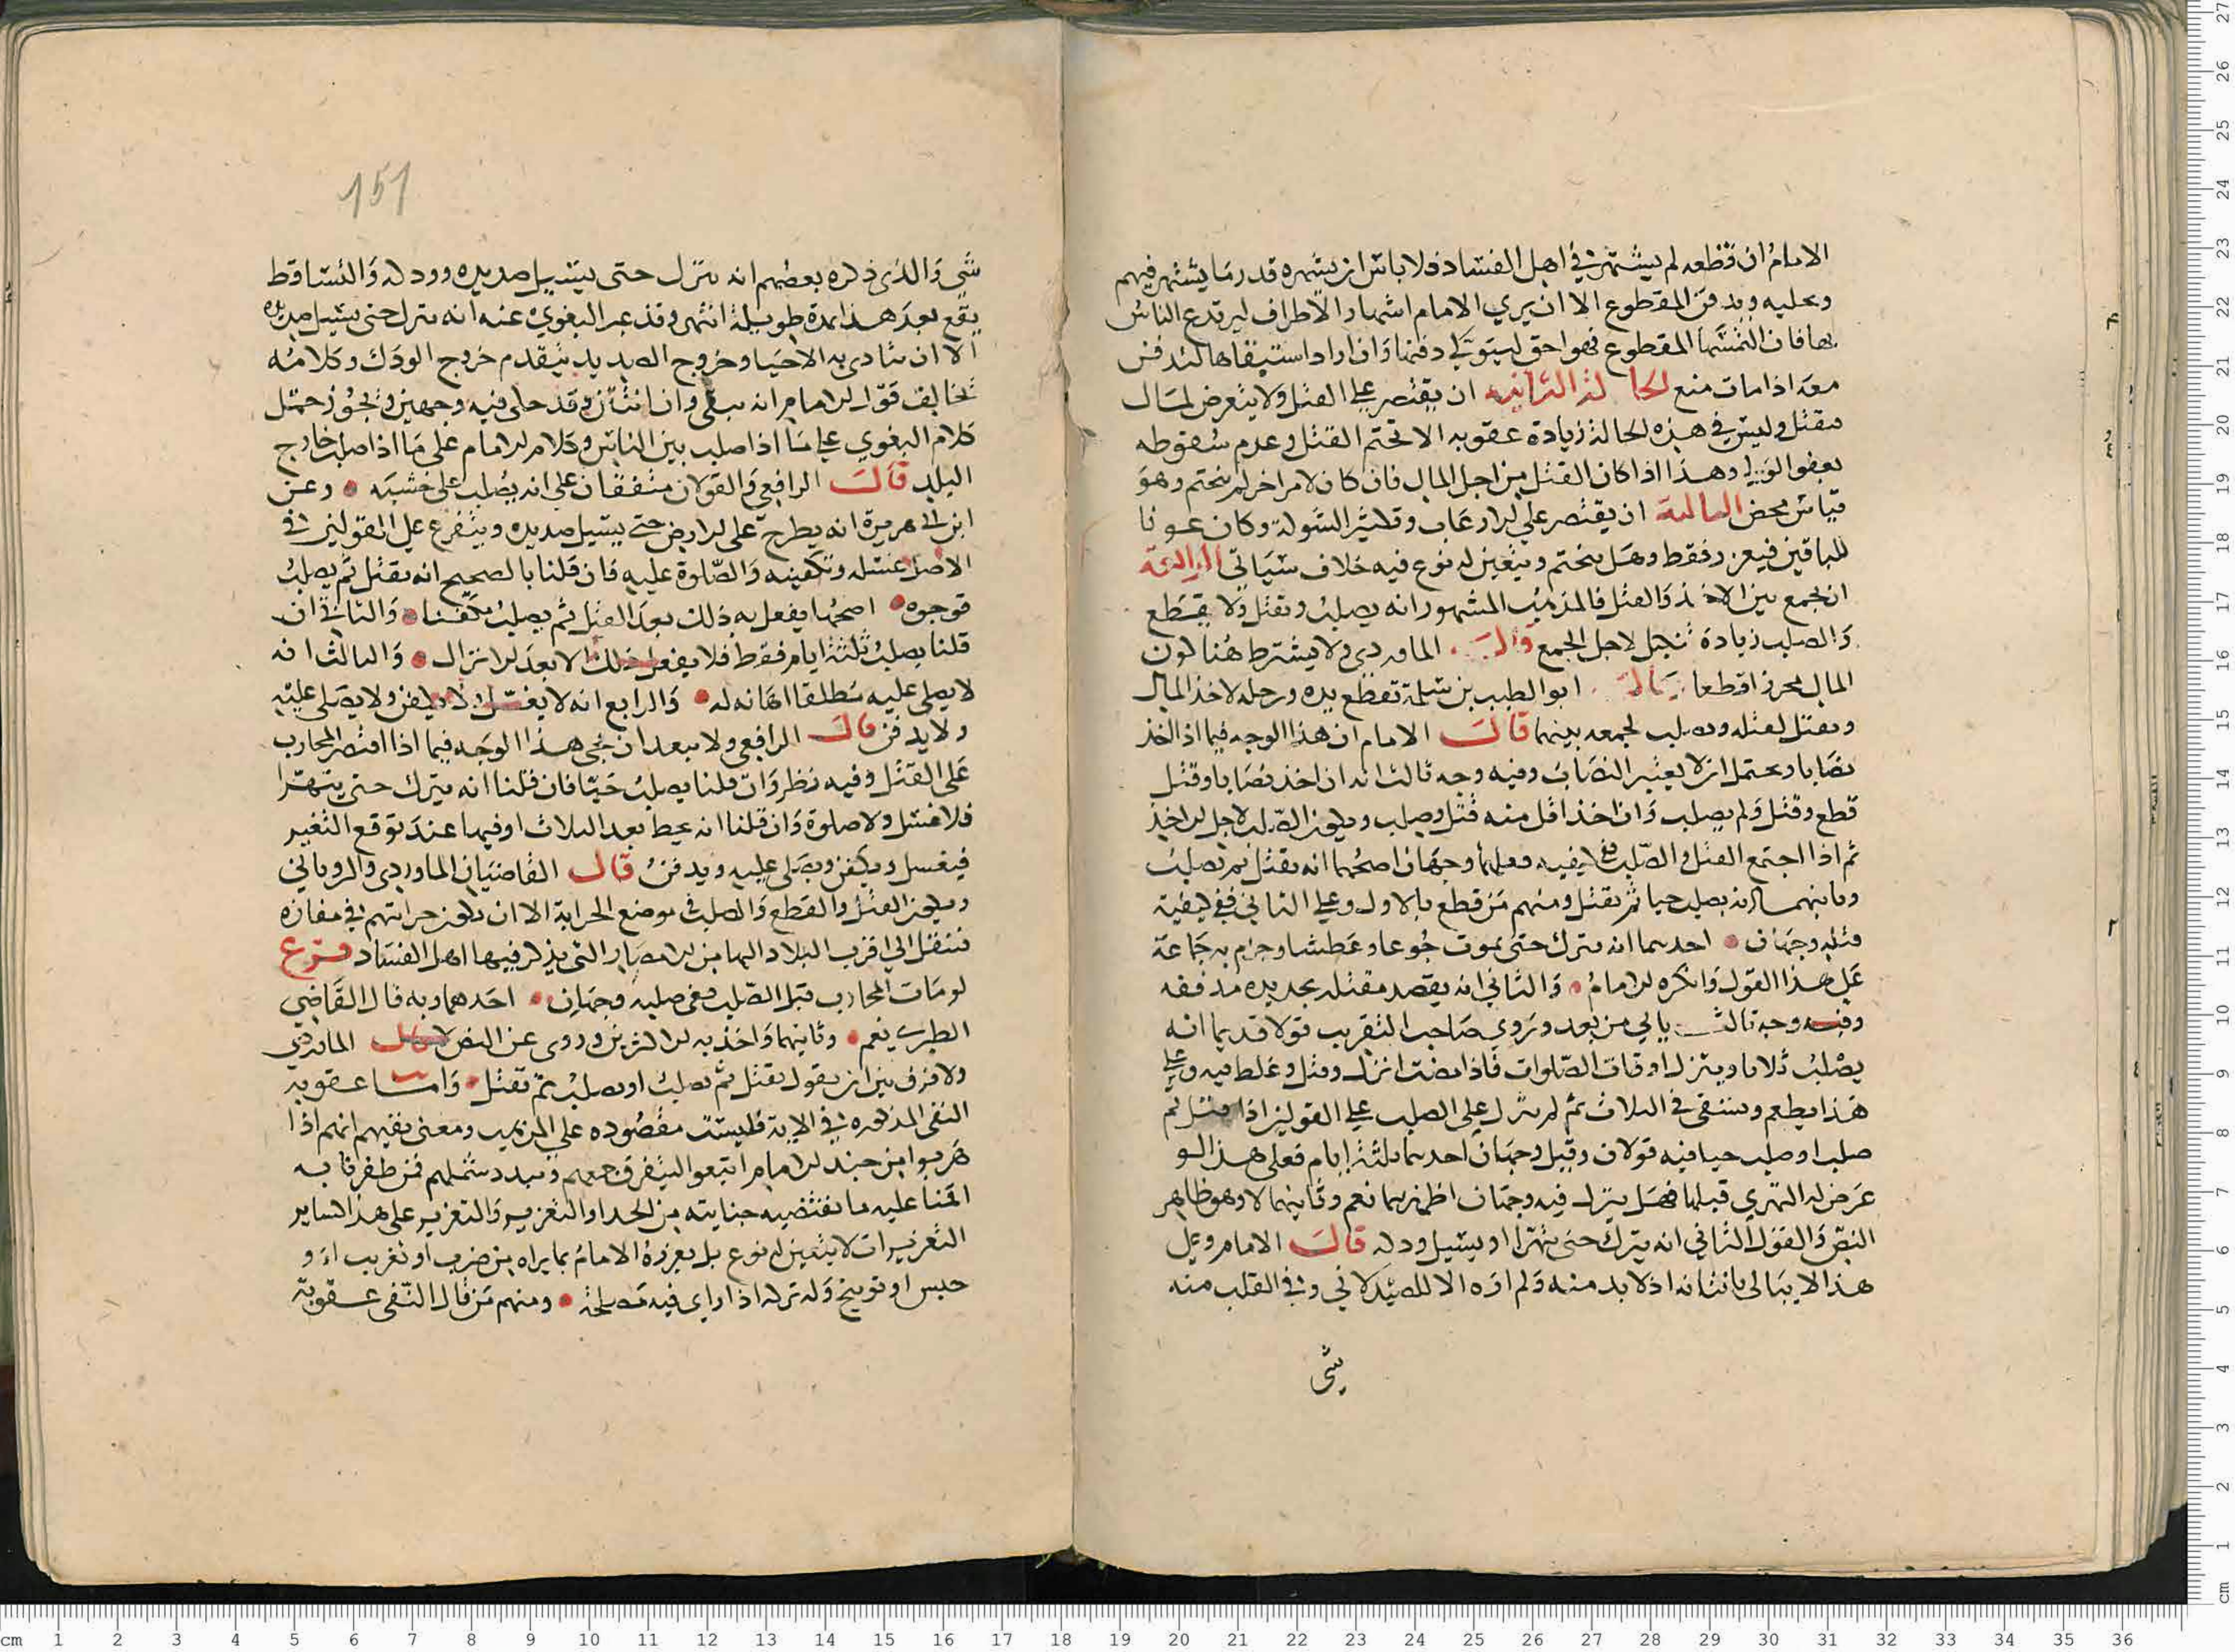 الامام ان قطعه لم يشتهر في اهل الفساد فلا باس ان يشهره قدر ما يشتهر فيهم
ويخليه ويدفن المقطوع الا ان يري الامام اشهار الاطراف ليرتدع الناس
بها فان التمسها المقطوع فهو احق ليتولي دفنها وان اراد استبقاها لتدفن
معه اذا مات منع الحالة الثانية ان يقتصر علي القتل ولا يتعرض لمال
فيقتل وليس في هذه الحالة زيادة عقوبه الا تحتم القتل وعدم سقوطه
بعفو الولي وهذا اذا كان القتل من اجل المال فان كان لامر اخر لم يتحتم وهو
قياس محض الثالثة ان يقتصر علي الارعاب وتكثير الشوكة وكان عونا
للباقين فيعزر فقط وهل يتحتم ويتعين له نوع فيه خلاف سياتي الرابعة
ان يجمع بين الاخذ والقتل فالمذهب المشهور انه يصلب ويقتل ولا يقطع
والصلب زيادة تنكيل لاجل الجمع وقال الماوردي ولا يشترط هنا كون
المال محرزا قطعا قال ابو الطيب بن سلمة تقطع يده ورجله لاخذ المال
ويقتل لقتله ويصلب لجمعه بينهما قال الامام ان هذا الوجه فيما اذا اخذ
نصابا ويحتمل ان لا يعتبر النصاب وفيه وجه ثالث انه ان اخذ نصابا وقتل
قطع وقتل ولم يصلب وان اخذ اقل منه قتل وصلب ويكون الصلب لاجل الاخذ
ثم اذا اجتمع القتل والصلب ففي كيفيه فعلهما وجهان اصحهما انه يقتل ثم يصلب
وثانيهما انه يصلب حيا ثم يقتل ومنهم من قطع بالاول وعلي الثاني ففي كيفية
قتله وجهان احدهما انه يترك حتى يموت جوعا وعطشا وجزم به جماعة
علي هذا القول وانكره الامام والثاني انه يقصد مقتله بحديده مذففه
وفيه وجه ثالث ياتي من بعد وروي صاحب التقريب قولا قديما انه
يصلب ثلاثا وينزل اوقات الصلوات فاذا مضت انزل وقتل وغلط فيه وعلي
هذا يطعم ويسقى في الثلاث ثم لم ينزل علي الصلب علي القولين اذا قتل ثم
صلب او صلب حيا فيه قولان وقيل وجهان احدهما ثلثة ايام فعلى هذا لو
عرض له التهري قبلها فهل ينزل فيه وجهان اظهرهما نعم وثانيهما لا وهو ظاهر
النص والقول الثاني انه يترك حتى يتهرا او يسيل ودكه قال الامام وعلي
هذا لا يبالى بانتانه اذ لا بد منه ولم اره الا للصيدلاني وفي القلب منه
شي
151
شي والذي ذكره بعضهم انه ينزل حتى يسيل صديده وودكه والتساقط
يقع بعد هذا بمدة طويلة انتهى وقد عبر البغوي عنه انه يترك حتى يسيل صديده
الا ان يتاذى به الاحيا وخروج الصديد يتقدم خروج الودك وكلامه
يخالف قول الامام انه يبقى وان انتن وقد حكي فيه وجهين ويجوز حمل
كلام البغوي علي ما اذا صلب بين الناس وكلام الامام على ما اذا صلب خارج
البلد قال الرافعي والقولان متفقان علي انه يصلب على خشبه وعن
ابن ابي هريرة انه يطرح على الارض حتى يسيل صديده ويتفرع علي القولين في
الاصل غسله وتكفينه والصلوة عليه فان قلنا بالصحيح انه يقتل ثم يصلب
فوجوه اصحها يفعل به ذلك بعد القتل ثم يصلب مكفنا والثاني ان
قلنا يصلب ثلثة ايام فقط فلا يفعل ذلك الا بعد الانزال والثالث انه
لا يصلى عليه مطلقا اهانه له والرابع انه لا يغسل ولا يكفن ولا يصلى عليه
ولا يدفن قال الرافعي ولا يبعد ان يجي هذا الوجه فيما اذا اقتصر المحارب
على القتل وفيه نظر وان قلنا يصلب حيا فان قلنا انه يترك حتى يتهرا
فلا غسل ولا صلوة وان قلنا انه يحط بعد الثلاث او فيها عند توقع التغير
فيغسل ويكفن ويصلى عليه ويدفن قال القاضيان الماوردي والروياني
ويكون القتل والقطع والصلب في موضع الحرابة الا ان يكون حرابتهم في مفازة
فننقل الي اقرب البلاد اليها من الامصار التي يذكر فيها اهل الفساد فرع
لو مات المحارب قبل الصلب ففي صلبه وجهان احدهما وبه قال القاضي
الطبري نعم وثانيهما واخذ به الاكثرين وروى عن النص لا قال الماوردي
ولا فرق بين ان نقول يقتل ثم يصلب او يصلب ثم يقتل واما عقوبه
النفي المذكوره في الاية فليست مقصوده علي المذهب ومعنى نفيهم انهم اذا
هربوا من جند الامام اتبعوا ليتفرق جمعهم ويبدد شملهم فمن ظفرنا به
اقمنا عليه ما تقتضيه جنايته من الحد او التعزير والتعزير على هذا كساير
التعزيرات لا يتعين له نوع بل يعزره الامام بما يراه من ضرب او تغريب او
حبس او توبيخ وله تركه اذا راي فيه مصلحة ومنهم من قال النفي عقوبة